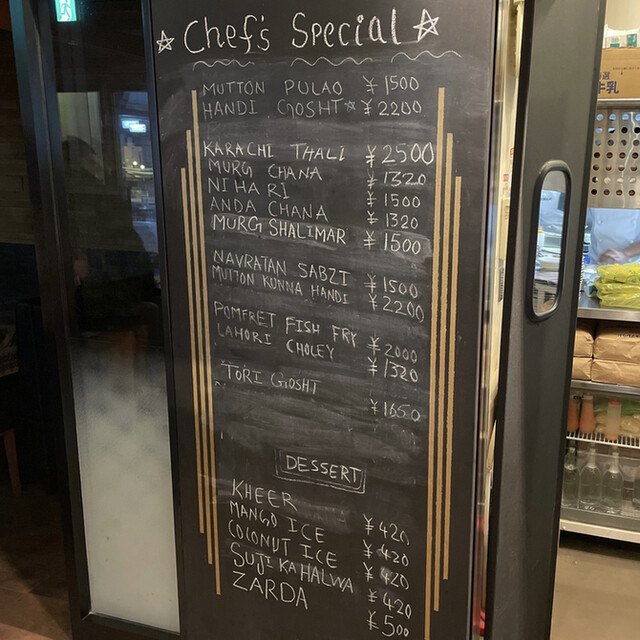 ☆ Chef's Special ☆
MUTTON PULAO ¥1500
HANDI GOSHT ☆ ¥2200
KARACHI THALI ¥2500
MURG CHANA ¥1320
NIHARI ¥1500
ANDA CHANA ¥1320
MURG SHALIMAR ¥1500
NAVRATAN SABZI ¥1500
MUTTON KUNNA HANDI ¥2200
POMFRET FISH FRY ¥2000
LAHORI CHOLEY ¥1320
TORI GOSHT ¥1650
DESSERT
KHEER ¥420
MANGO ICE ¥420
COCONUT ICE ¥420
SUJI KA HALWA ¥420
ZARDA ¥500
牛乳